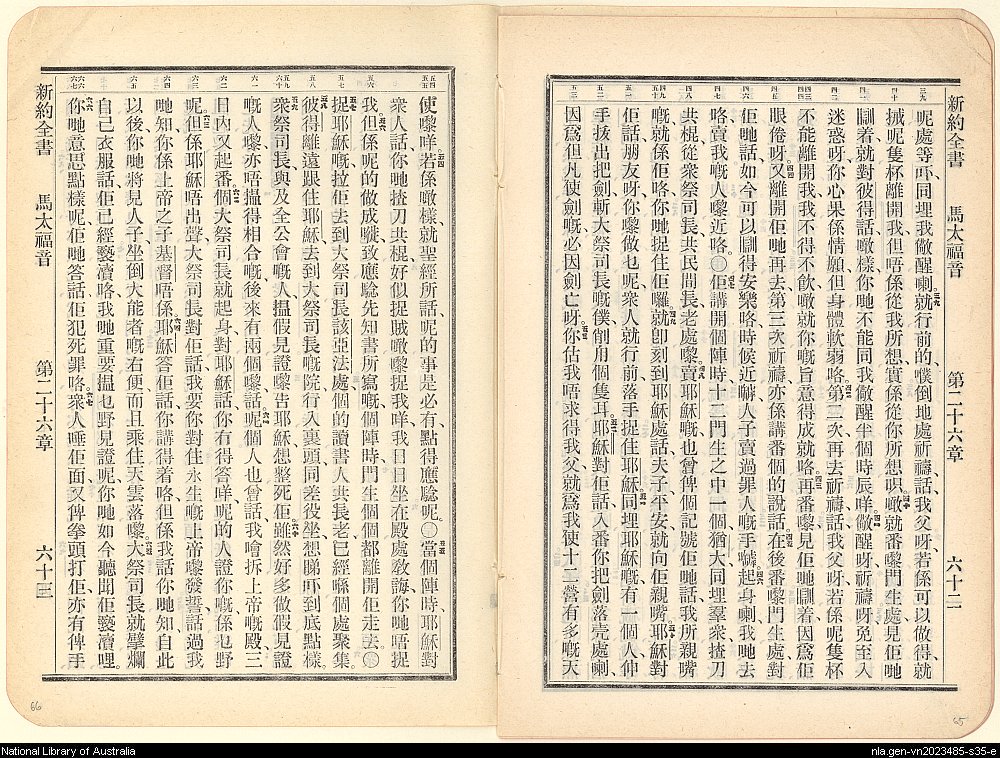 新約全書 馬太福音 第二十六章 六十二
呢處等吓同埋我儆醒喇就行前的噗倒地處祈禱話我父呀若係可以做得就
搣呢隻杯離開我但唔係從我所想實係從你所想呮噉就番嚟門生處見佢哋
瞓着就對彼得話噉樣你哋不能同我儆醒半個時辰咩儆醒呀祈禱呀免至入
迷惑呀你心果係情願但身體軟弱咯第二次再去祈禱話我父呀若係呢隻杯
不能離開我我不得不飲噉就你嘅旨意得成就咯再番嚟見佢哋瞓着因爲佢
眼倦呀又離開佢哋再去第三次祈禱亦係講番個的說話在後番嚟門生處對
佢哋話如今可以瞓得安樂咯時候近嘑人子賣過罪人嘅手嘑起身喇我哋去
咯賣我嘅人嚟近咯〇佢講開個陣時十二門生之中一個猶大同埋羣衆揸刀
共棍從衆祭司長共民間長老處嚟賣耶穌嘅也曾俾個記號佢哋話我所親嘴
嘅就係佢咯你哋捉住佢囉就卽刻到耶穌處話夫子平安就向佢親嘴耶穌對
佢話朋友呀你嚟做乜呢衆人就行前落手捉住耶穌同埋耶穌嘅有一個人伸
手拔出把劍斬大祭司長嘅僕削甪個隻耳耶穌對佢話入番你把劍落壳處喇
因爲但凡使劍嘅必因劍亡呀你估我唔求得我父就爲我使十二營有多嘅天
使嚟咩若係噉樣就聖經所話呢的事是必有點得應騐呢〇當個陣時耶穌對
衆人話你哋揸刀共棍好似捉賊噉嚟捉我咩我日日坐在殿處敎誨你哋唔捉
我但係呢的做成嘥致應騐先知書所寫嘅個陣時門生個個都離開佢走去〇
捉耶穌嘅拉佢去到大祭司長該亞法處個的讀書人共長老已經喺個處聚集
彼得離遠跟住耶穌去到大祭司長嘅院行入裏頭同差役坐想睇吓到底點樣
衆祭司長與及全公會嘅人搵假見證嚟告耶穌想整死佢雖然好多做假見證
嘅人嚟亦唔搵得相合嘅後來有兩個嚟話呢個人也曾話我噲拆上帝嘅殿三
日內又起番個大祭司長就起身對耶穌話你有得答咩呢的人證你嘅係乜野
呢但係耶穌唔出聲大祭司長對佢話我要你對住永生嘅上帝嚟發誓話過我
哋知你係上帝之子基督唔係耶穌答佢話你講得着咯但係我話你哋知自此
以後你哋將見人子坐倒大能者嘅右便而且乘住天雲落嚟大祭司長就擘爛
自己衣服話佢已經褻瀆咯我哋重要搵乜野見證呢你哋如今聽聞佢褻瀆哩
你哋意思點樣呢佢哋答話佢犯死罪咯衆人唾佢面又俾拳頭打佢亦有俾手
新約全書 馬太福音 第二十六章 六十三
66
65
National Library of Australia
nla.gen-vn2023485-s35-e